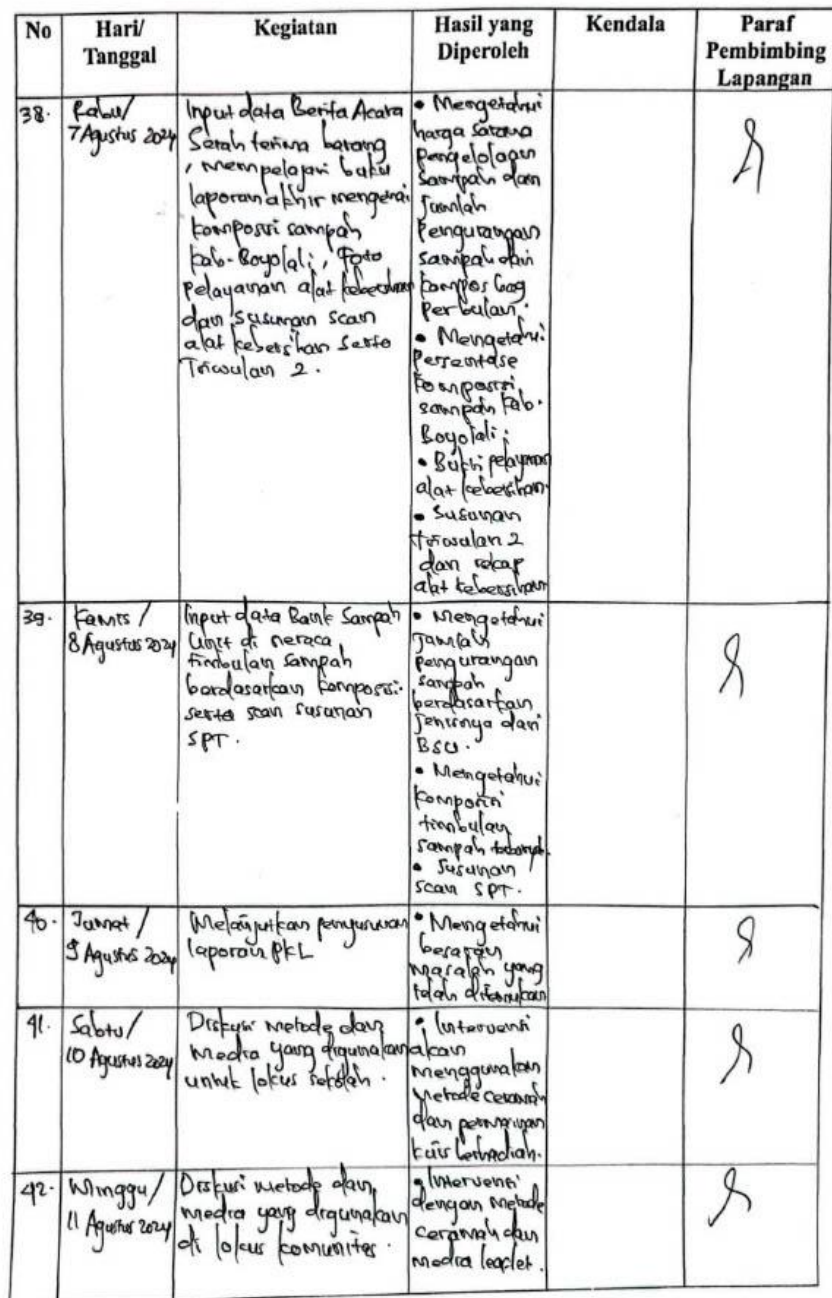 No Hari/ Kegiatan Hasil yang Kendala Paraf
Tanggal Diperoleh Pembimbing
Lapangan
38. Rabu/
7 Agustus 2024
Input data Berita Acara
Serah terima barang
, mempelajari buku
laporan akhir mengenai
komposisi sampah
Kab. Boyolali, Foto
pelayanan alat kebersihan
dan susunan scan
alat kebersihan serta
Triwulan 2.
• Mengetahui
harga sarana
pengelolaan
sampah dan
Jumlah
Pengurangan
sampah dari
kompos bag
perbulan.
• Mengetahui
Persentase
komposisi
sampah Kab.
Boyolali;
• Bukti pelayanan
alat kebersihan.
• Susunan
triwulan 2
dan rekap
alat kebersihan
39. Kamis /
8 Agustus 2024
Input data Bank Sampah
Unit di neraca
timbulan sampah
berdasarkan komposisi.
serta scan susunan
SPT.
• Mengetahui
Jumlah
pengurangan
sampah
berdasarkan
Jenisnya dari
BSU.
• Mengetahui
Komposisi
timbulan
sampah
• Susunan
scan SPT.
40. Jumat /
9 Agustus 2024
Melanjutkan penyusunan
laporan PKL
• Mengetahui
besaran
masalah yang
telah ditentukan
41. Sabtu/
10 Agustus 2024
Diskusi metode dan
media yang digunakan
untuk lokus sekolah.
• Intervensi
akan
menggunakan
metode ceramah
dan permainan
kuis berhadiah.
42. Minggu/
11 Agustus 2024
Diskusi metode dan
media yang digunakan
di lokus komunitas.
• Intervensi
dengan metode
ceramah dan
media leaflet.